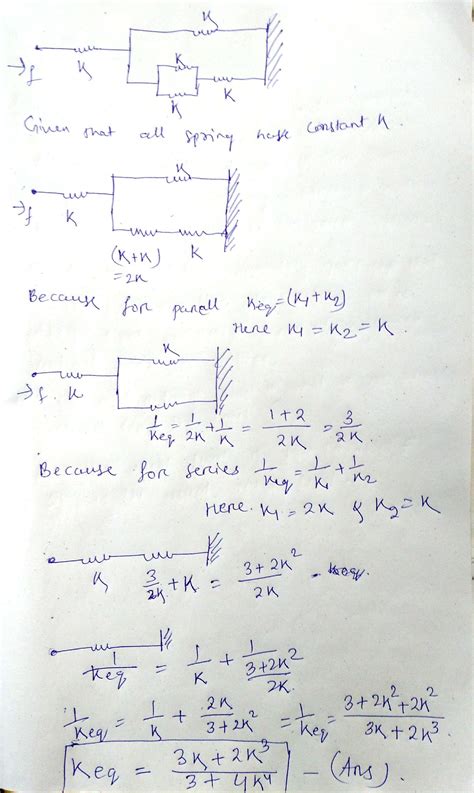 K
K
→f
K
K
K
Given that all spring have constant K.
K
→f
K
(K+K)
=2K
K
Because for parall Keq=(K₁+K₂)
Here K₁=K₂=K.
K
→f. K
1/Keq = 1/2K + 1/K = 1+2/2K = 3/2K.
Because for series 1/Keq = 1/K₁ + 1/K₂
Here. K₁=2K & K₂=K
K 3/2K + K = 3+2K²/2K - Keq.
1/Keq = 1/K + 1/(3+2K²/2K)
1/Keq = 1/K + 2K/3+2K² = 1/Keq = 3+2K²+2K²/3K+2K³.
Keq = 3K+2K³/3+4K⁴ - (Ans).